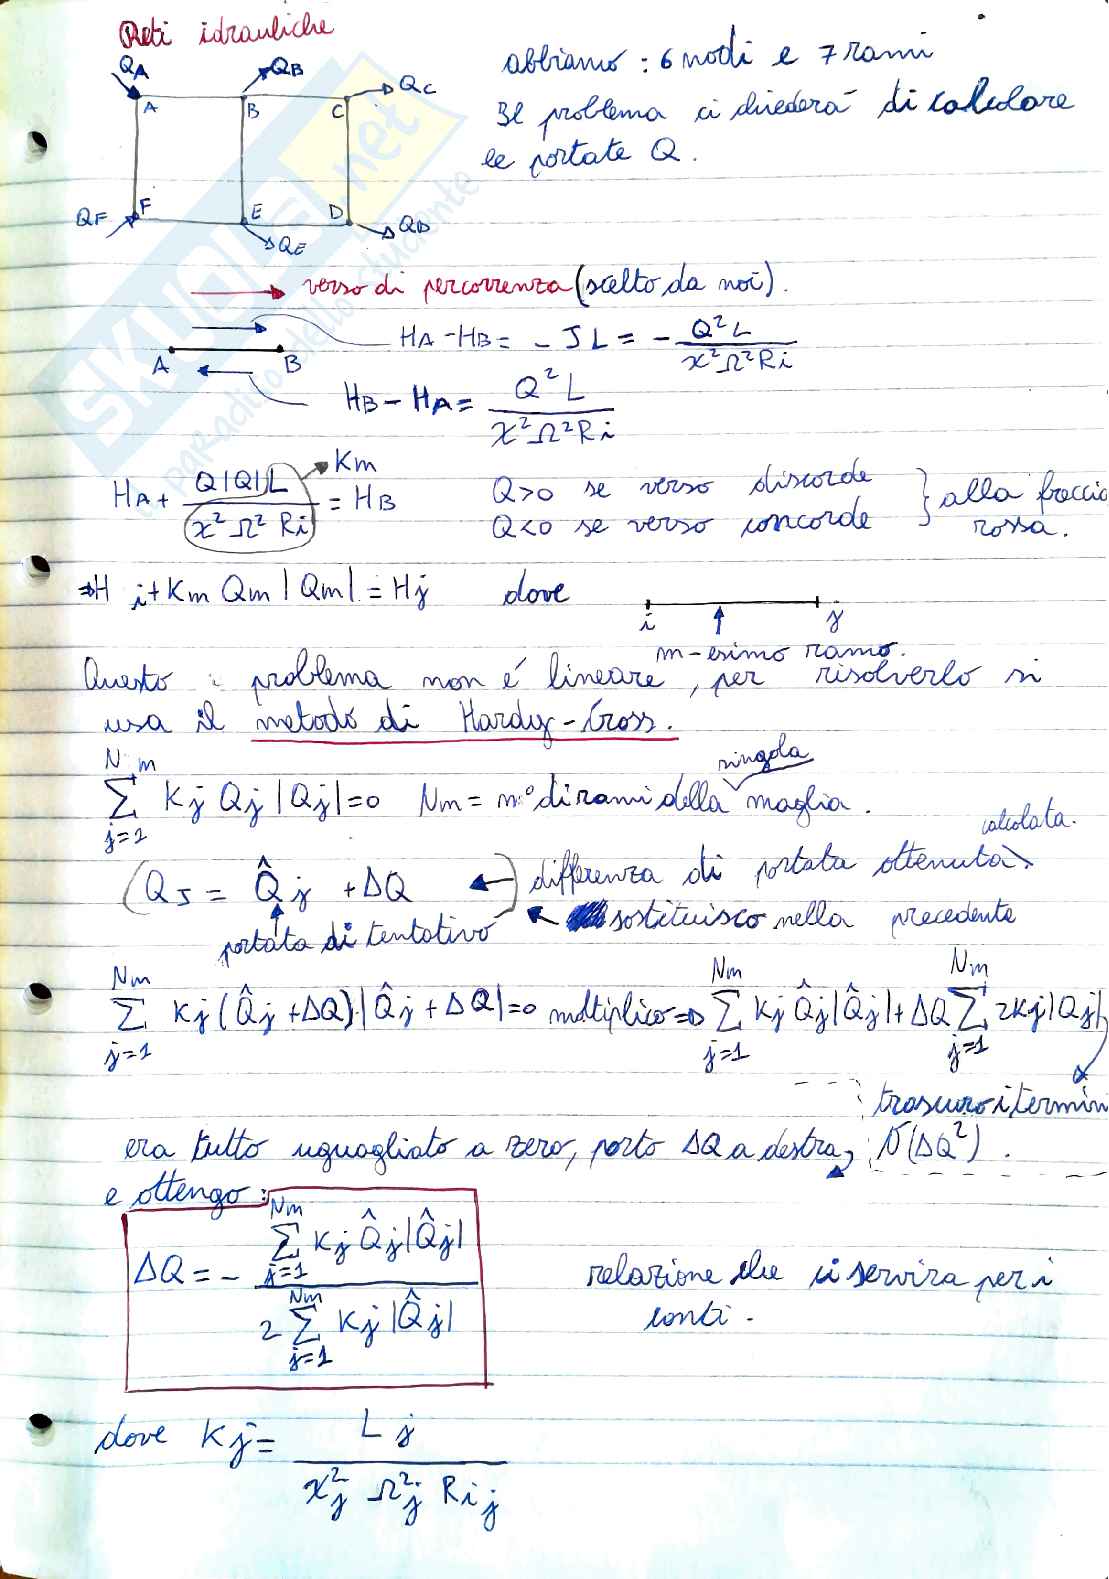 Reti idrauliche
QA QB QC
A B C
abbiamo : 6 nodi e 7 rami
Il problema ci chiederà di calcolare
le portate Q.
QF F E D QD
QE
SKUOLA.net
il paradiso dello studente
verso di percorrenza (scelto da noi).
A B
HA - HB = - JL = - Q² L / χ² Ω² Ri
HB - HA = Q² L / χ² Ω² Ri
HA + Q|Q|L / χ² Ω² Ri = HB
Km
Q>0 se verso discorde
Q<0 se verso concorde } alla freccia rossa.
⇒ Hi + Km Qm |Qm| = Hj dove
i j
m-esimo ramo.
Questo problema non é lineare, per risolverlo si
usa il metodo di Hardy-Cross.
Nm ∑ j=1 Kj Qj |Qj| = 0 Nm = n° di rami della singola maglia.
(QJ = Q̂j + ΔQ ←) differenza di portata ottenuta calcolata.
portata di tentativo ← sostituisco nella precedente
Nm ∑ j=1 Kj (Q̂j + ΔQ)·|Q̂j + ΔQ| = 0 moltiplico ⇒ Nm ∑ j=1 Kj Q̂j |Q̂j| + ΔQ Nm ∑ j=1 2Kj |Qj|
trascuro i termini
era tutto uguagliato a zero, porto ΔQ a destra, O(ΔQ²).
e ottengo :
ΔQ = - Nm ∑ j=1 Kj Q̂j |Q̂j| / 2 Nm ∑ j=1 Kj |Q̂j|
relazione che ci servira per i
conti.
dove Kj = Lj / χ²j Ω²j Rij